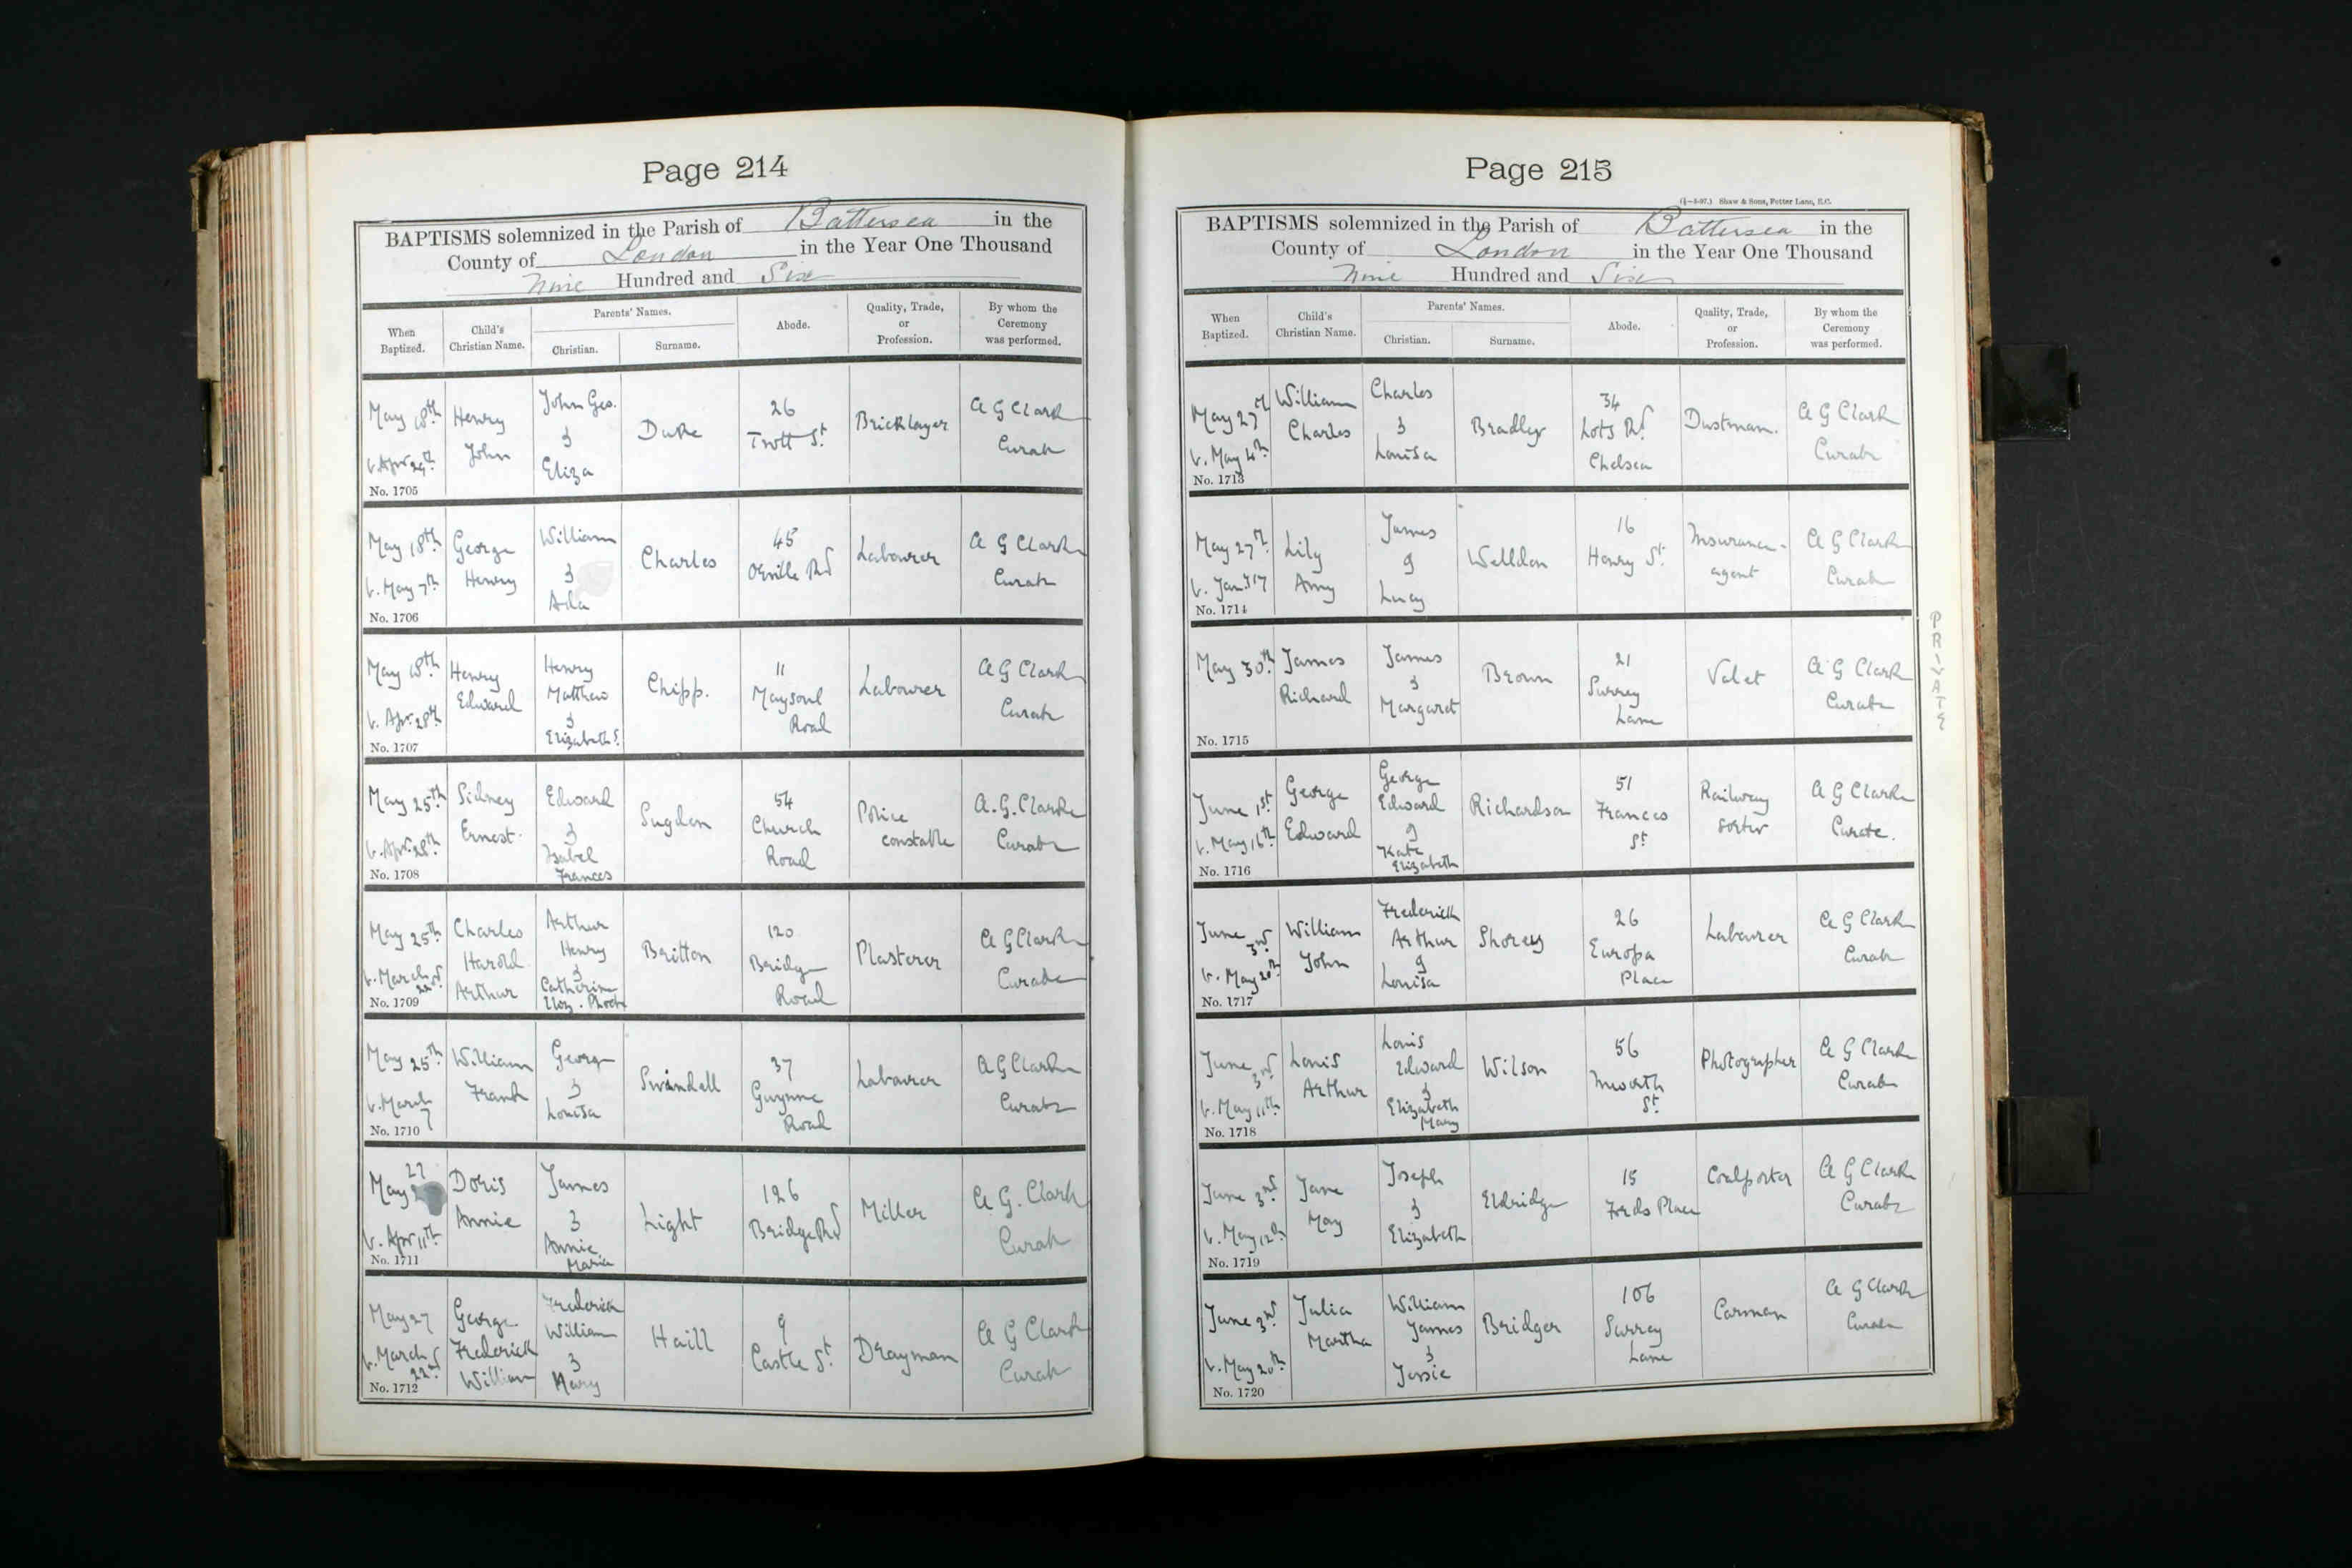 Page 214
BAPTISMS solemnized in the Parish of Battersea in the
County of London in the Year One Thousand
Nine Hundred and Six
When Baptized. Child's Christian Name. Parents' Names. Christian. Surname. Abode. Quality, Trade, or Profession. By whom the Ceremony was performed.
May 18th b. Apr 29th No. 1705 Henry John John Geo. & Eliza Duke 26 Trott St. Bricklayer A G Clark Curate
May 18th b. May 7th No. 1706 George Henry William & Ada Charles 45 Orville Rd Labourer A G Clark Curate
May 18th b. Apr. 28th No. 1707 Henry Edward Henry Matthew & Elizabeth S. Chipp. 11 Maysoul Road Labourer A G Clark Curate
May 25th b. Apr. 28th No. 1708 Sidney Ernest. Edward & Isabel Frances Sugden 54 Church Road Police constable A. G. Clarke Curate
May 25th b. March 22nd No. 1709 Charles Harold Arthur Arthur Henry & Catherine Eliz. Phoebe Britton 120 Bridge Road Plasterer A G Clark Curate
May 25th b. March 7 No. 1710 William Frank George & Louisa Swindell 37 Gwynne Road Labourer A G Clark Curate
May 27 b. Apr 11th No. 1711 Doris Annie James & Annie Maria Light 126 Bridge Rd Miller A. G. Clark Curate
May 27 b. March 22nd No. 1712 George Frederick William Frederick William & Mary Haill 9 Castle St. Drayman A G Clark Curate
Page 215
(½—3-97.) Shaw & Sons, Fetter Lane, E.C.
BAPTISMS solemnized in the Parish of Battersea in the
County of London in the Year One Thousand
Nine Hundred and Six
When Baptized. Child's Christian Name. Parents' Names. Christian. Surname. Abode. Quality, Trade, or Profession. By whom the Ceremony was performed.
May 27th b. May 4th No. 1713 William Charles Charles & Louisa Bradley 34 Lots Rd. Chelsea Dustman. A G Clark Curate
May 27th b. Jany 17 No. 1714 Lily Amy James & Lucy Welldon 16 Henry St. Insurance-agent A G Clark Curate
May 30th No. 1715 James Richard James & Margaret Brown 21 Surrey Lane Valet A G Clark Curate
PRIVATE
June 1st b. May 16th No. 1716 George Edward George Edward & Kate Elizabeth Richardson 51 Frances St. Railway sorter A G Clark Curate.
June 3rd b. May 20th No. 1717 William John Frederick Arthur & Louisa Shorey 26 Europa Place Labourer A G Clark Curate
June 3rd b. May 11th No. 1718 Louis Arthur Louis Edward & Elizabeth Mary Wilson 56 Inworth St. Photographer A G Clark Curate
June 3rd b. May 12th No. 1719 Jane May Joseph & Elizabeth Eldridge 15 Fords Place Coalporter A G Clark Curate
June 3rd b. May 20th No. 1720 Julia Martha William James & Jessie Bridger 106 Surrey Lane Carman A G Clark Curate